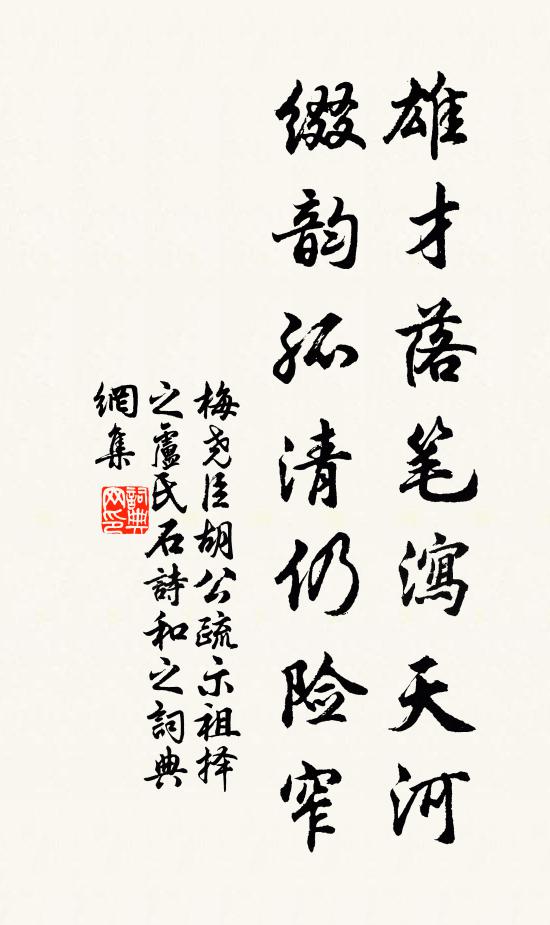 雄才落笔瀉天河
缀韵孤清仍险窄
梅尧臣胡公疏示祖择
之盧氏石詩和之詞典
網集
詞典
网印